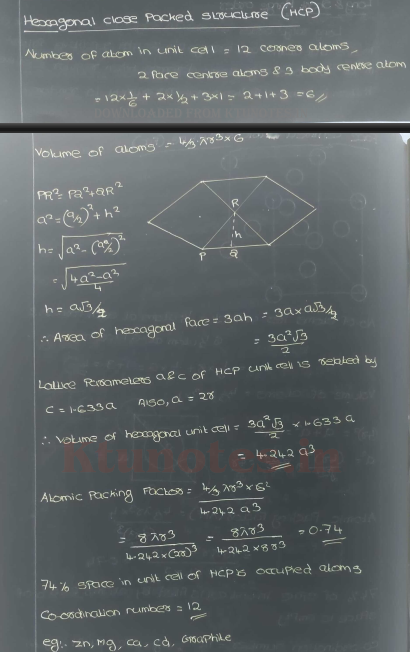 Hexagonal close Packed structure (HCP)
Number of atom in unit cell = 12 corner atoms,
2 face centre atoms & 3 body centre atom
= 12×1/6 + 2×1/2 + 3×1 = 2+1+3 = 6
Volume of atoms = 4/3 πr³ × 6
PR² = PQ²+QR²
a² = (a/2)² + h²
h = √(a² - (a/2)²)
= √((4a²-a²)/4)
h = a√3/2
R
h
P Q
∴ Area of hexagonal face = 3ah = 3a × a√3/2
= 3a²√3/2
Lattice Parameters a&c of HCP unit cell is related by
c = 1.633a Also, a = 2r
∴ Volume of hexagonal unit cell = 3a²√3/2 × 1.633 a
Ktunotes.in
= 4.242 a³
Atomic Packing Factor = (4/3 πr³×6)/(4.242 a³)
= 8πr³/(4.242×(2r)³) = 8πr³/(4.242×8r³) = 0.74
74% space in unit cell of HCP is occupied atoms
Co-ordination number = 12
eg:- Zn, Mg, Ca, Cd, Graphite